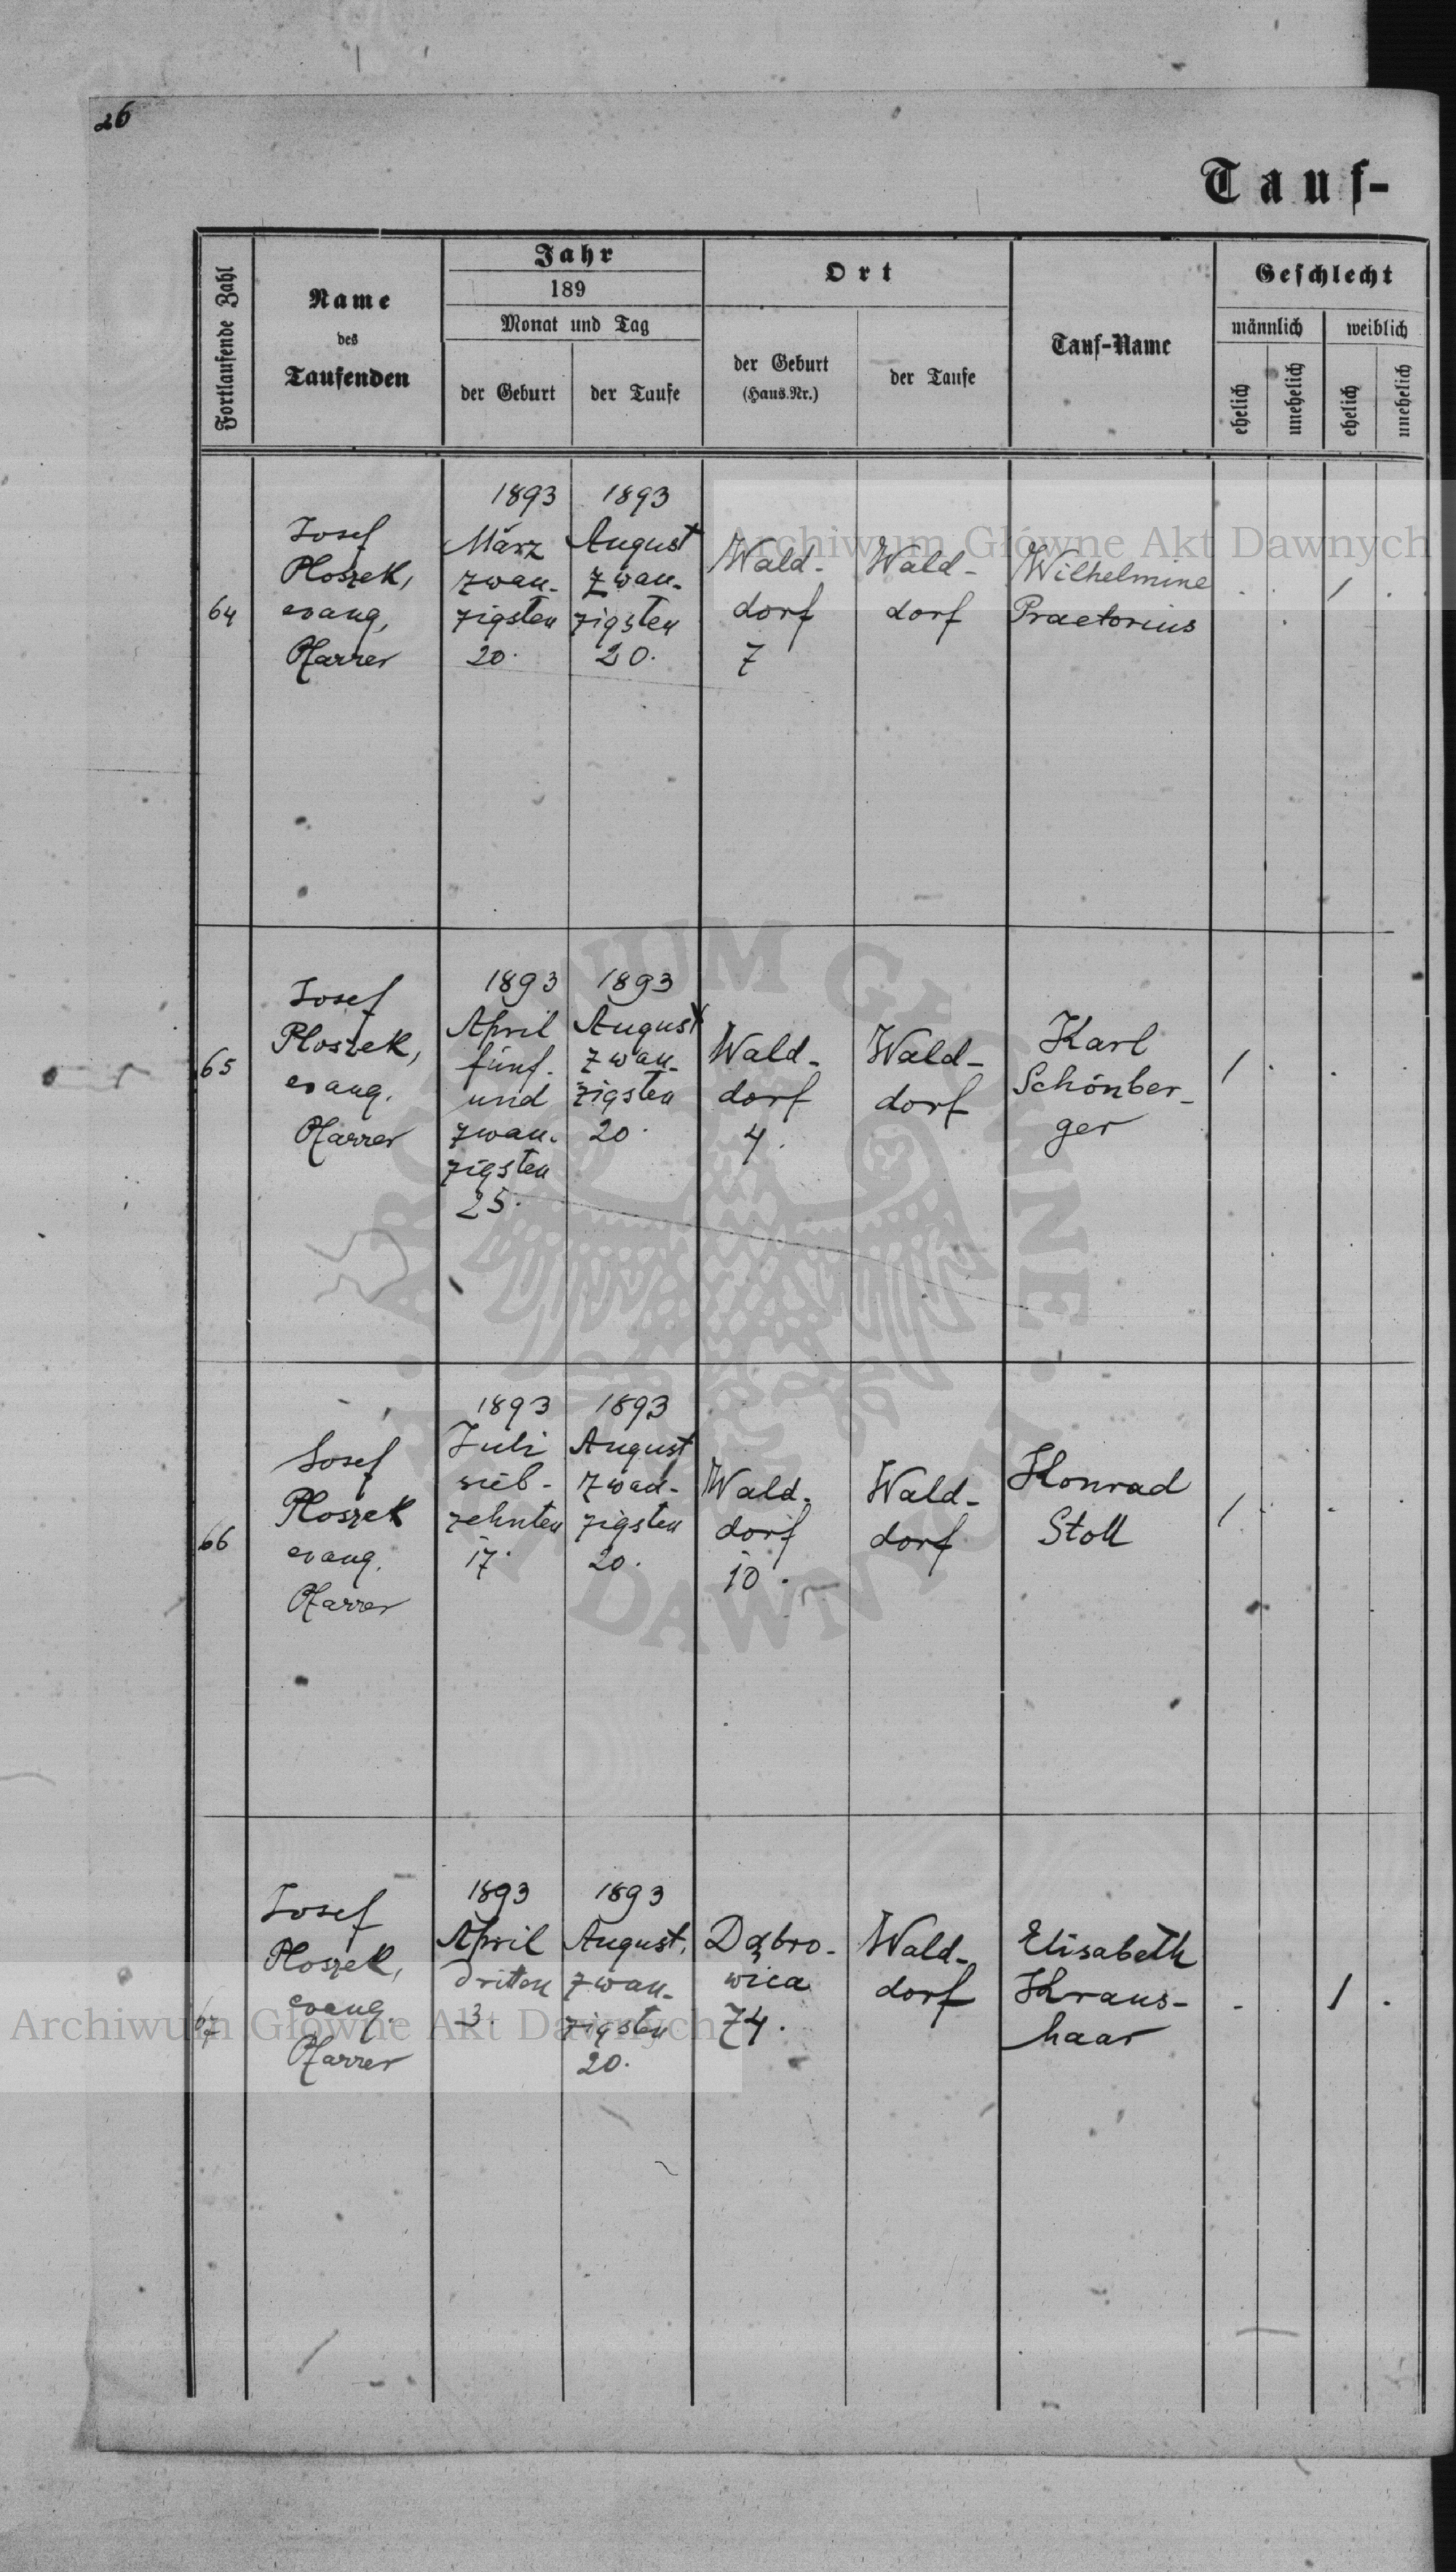 26
Tauf-
Fortlaufende Zahl
Name
des
Taufenden
Jahr
189
Monat und Tag
der Geburt
der Taufe
Ort
der Geburt
(Haus.Nr.)
der Taufe
Tauf-Name
Geschlecht
männlich
weiblich
ehelich
unehelich
ehelich
unehelich
64
Josef
Ploszek,
evang.
Pfarrer
1893
März
zwan-
zigsten
20.
1893
August
zwan-
zigsten
20.
Wald-
dorf
7
Wald-
dorf
Wilhelmine
Praetorius
. . 1 .
65
Josef
Ploszek,
evang.
Pfarrer
1893
April
fünf-
und
zwan-
zigsten
25.
1893
August
zwan-
zigsten
20.
Wald-
dorf
4.
Wald-
dorf
Karl
Schönber-
ger
1 . . .
66
Josef
Ploszek
evang.
Pfarrer
1893
Juli
sieb-
zehnten
17.
1893
August
zwan-
zigsten
20.
Wald-
dorf
10.
Wald-
dorf
Konrad
Stoll
1 . . .
67
Josef
Ploszek,
evang.
Pfarrer
1893
April
dritten
3.
1893
August.
zwan-
zigsten
20.
Dąbro-
wica
74.
Wald-
dorf
Elisabeth
Kraus-
haar
. 1 .
Archiwum Główne Akt Dawnych
Archiwum Główne Akt Dawnych
ARCHIWUM GŁÓWNE AKT DAWNYCH